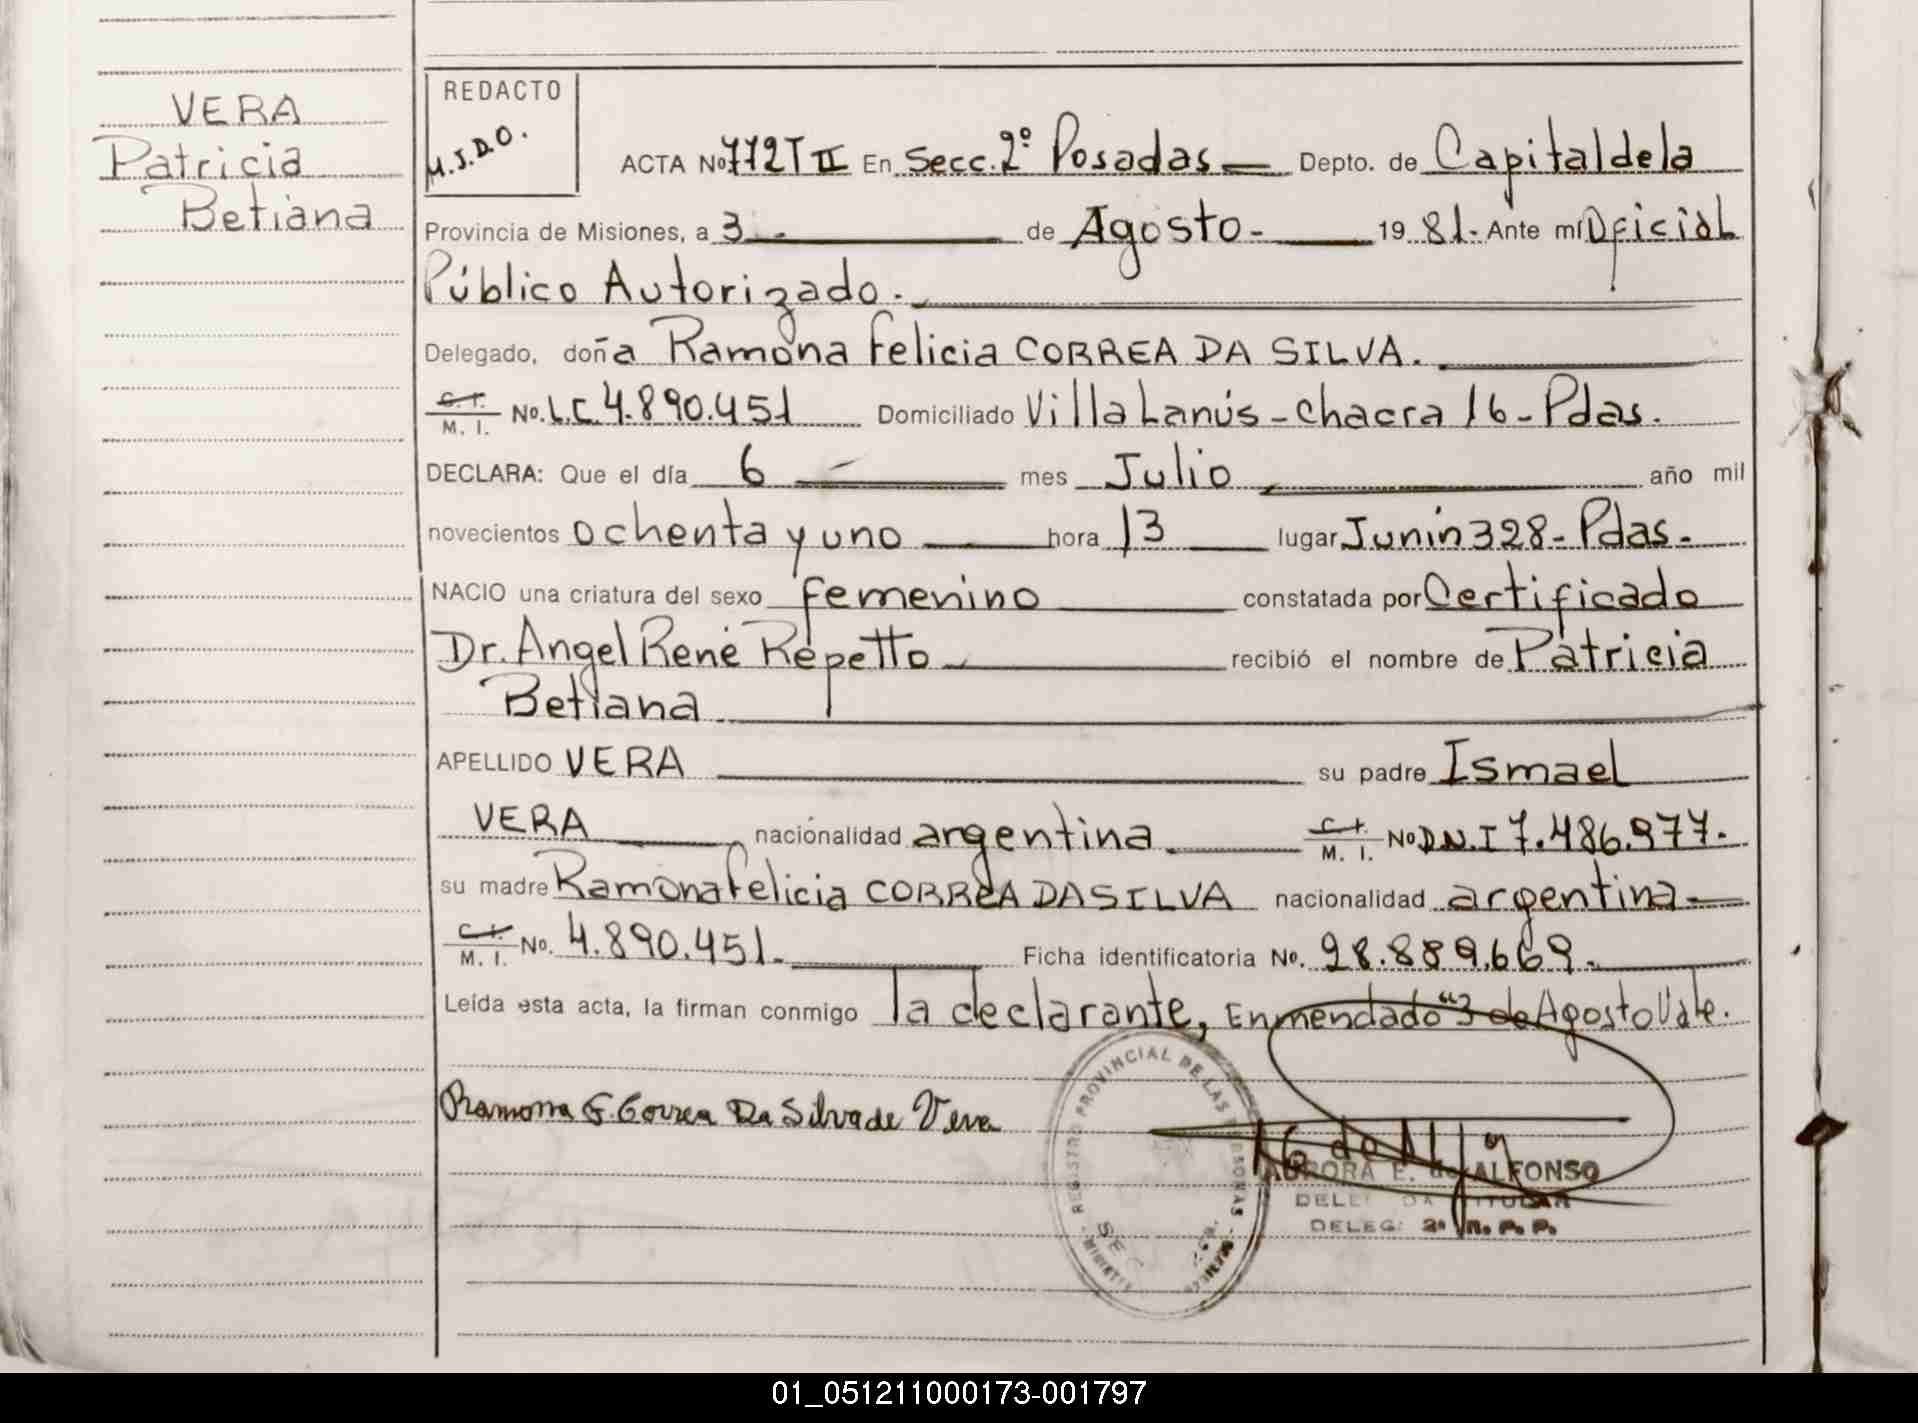 VERA
Patricia
Betiana
REDACTO
M.J.D.O.
ACTA No 772 T II En Secc. 2º Posadas Depto. de Capital de la
Provincia de Misiones, a 3 - de Agosto - 19 81 - Ante mí Oficial
Público Autorizado.
Delegado, doña Ramona Felicia CORREA DA SILVA.
C. I. / M. I. No. L.C. 4.890.451 Domiciliado Villa Lanús - Chacra 16 - Pdas.
DECLARA: Que el día 6 mes Julio año mil
novecientos ochenta y uno hora 13 lugar Junín 328 - Pdas.
NACIO una criatura del sexo femenino constatada por Certificado
Dr. Angel René Repetto recibió el nombre de Patricia
Betiana
APELLIDO VERA su padre Ismael
VERA nacionalidad argentina C. I. / M. I. No D.N.I 7.486.977.
su madre Ramona Felicia CORREA DA SILVA nacionalidad argentina
C. I. / M. I. No. 4.890.451. Ficha identificatoria No. 28.889.669.
Leída esta acta, la firman conmigo la declarante, Enmendado "3 de Agosto Vale.
Ramona F. Correa Da Silva de Vera
REGISTRO PROVINCIAL DE LAS PERSONAS
AURORA E. de ALFONSO
DELEGADA TITULAR
DELEG. 2ª R. P. P.
01_051211000173-001797